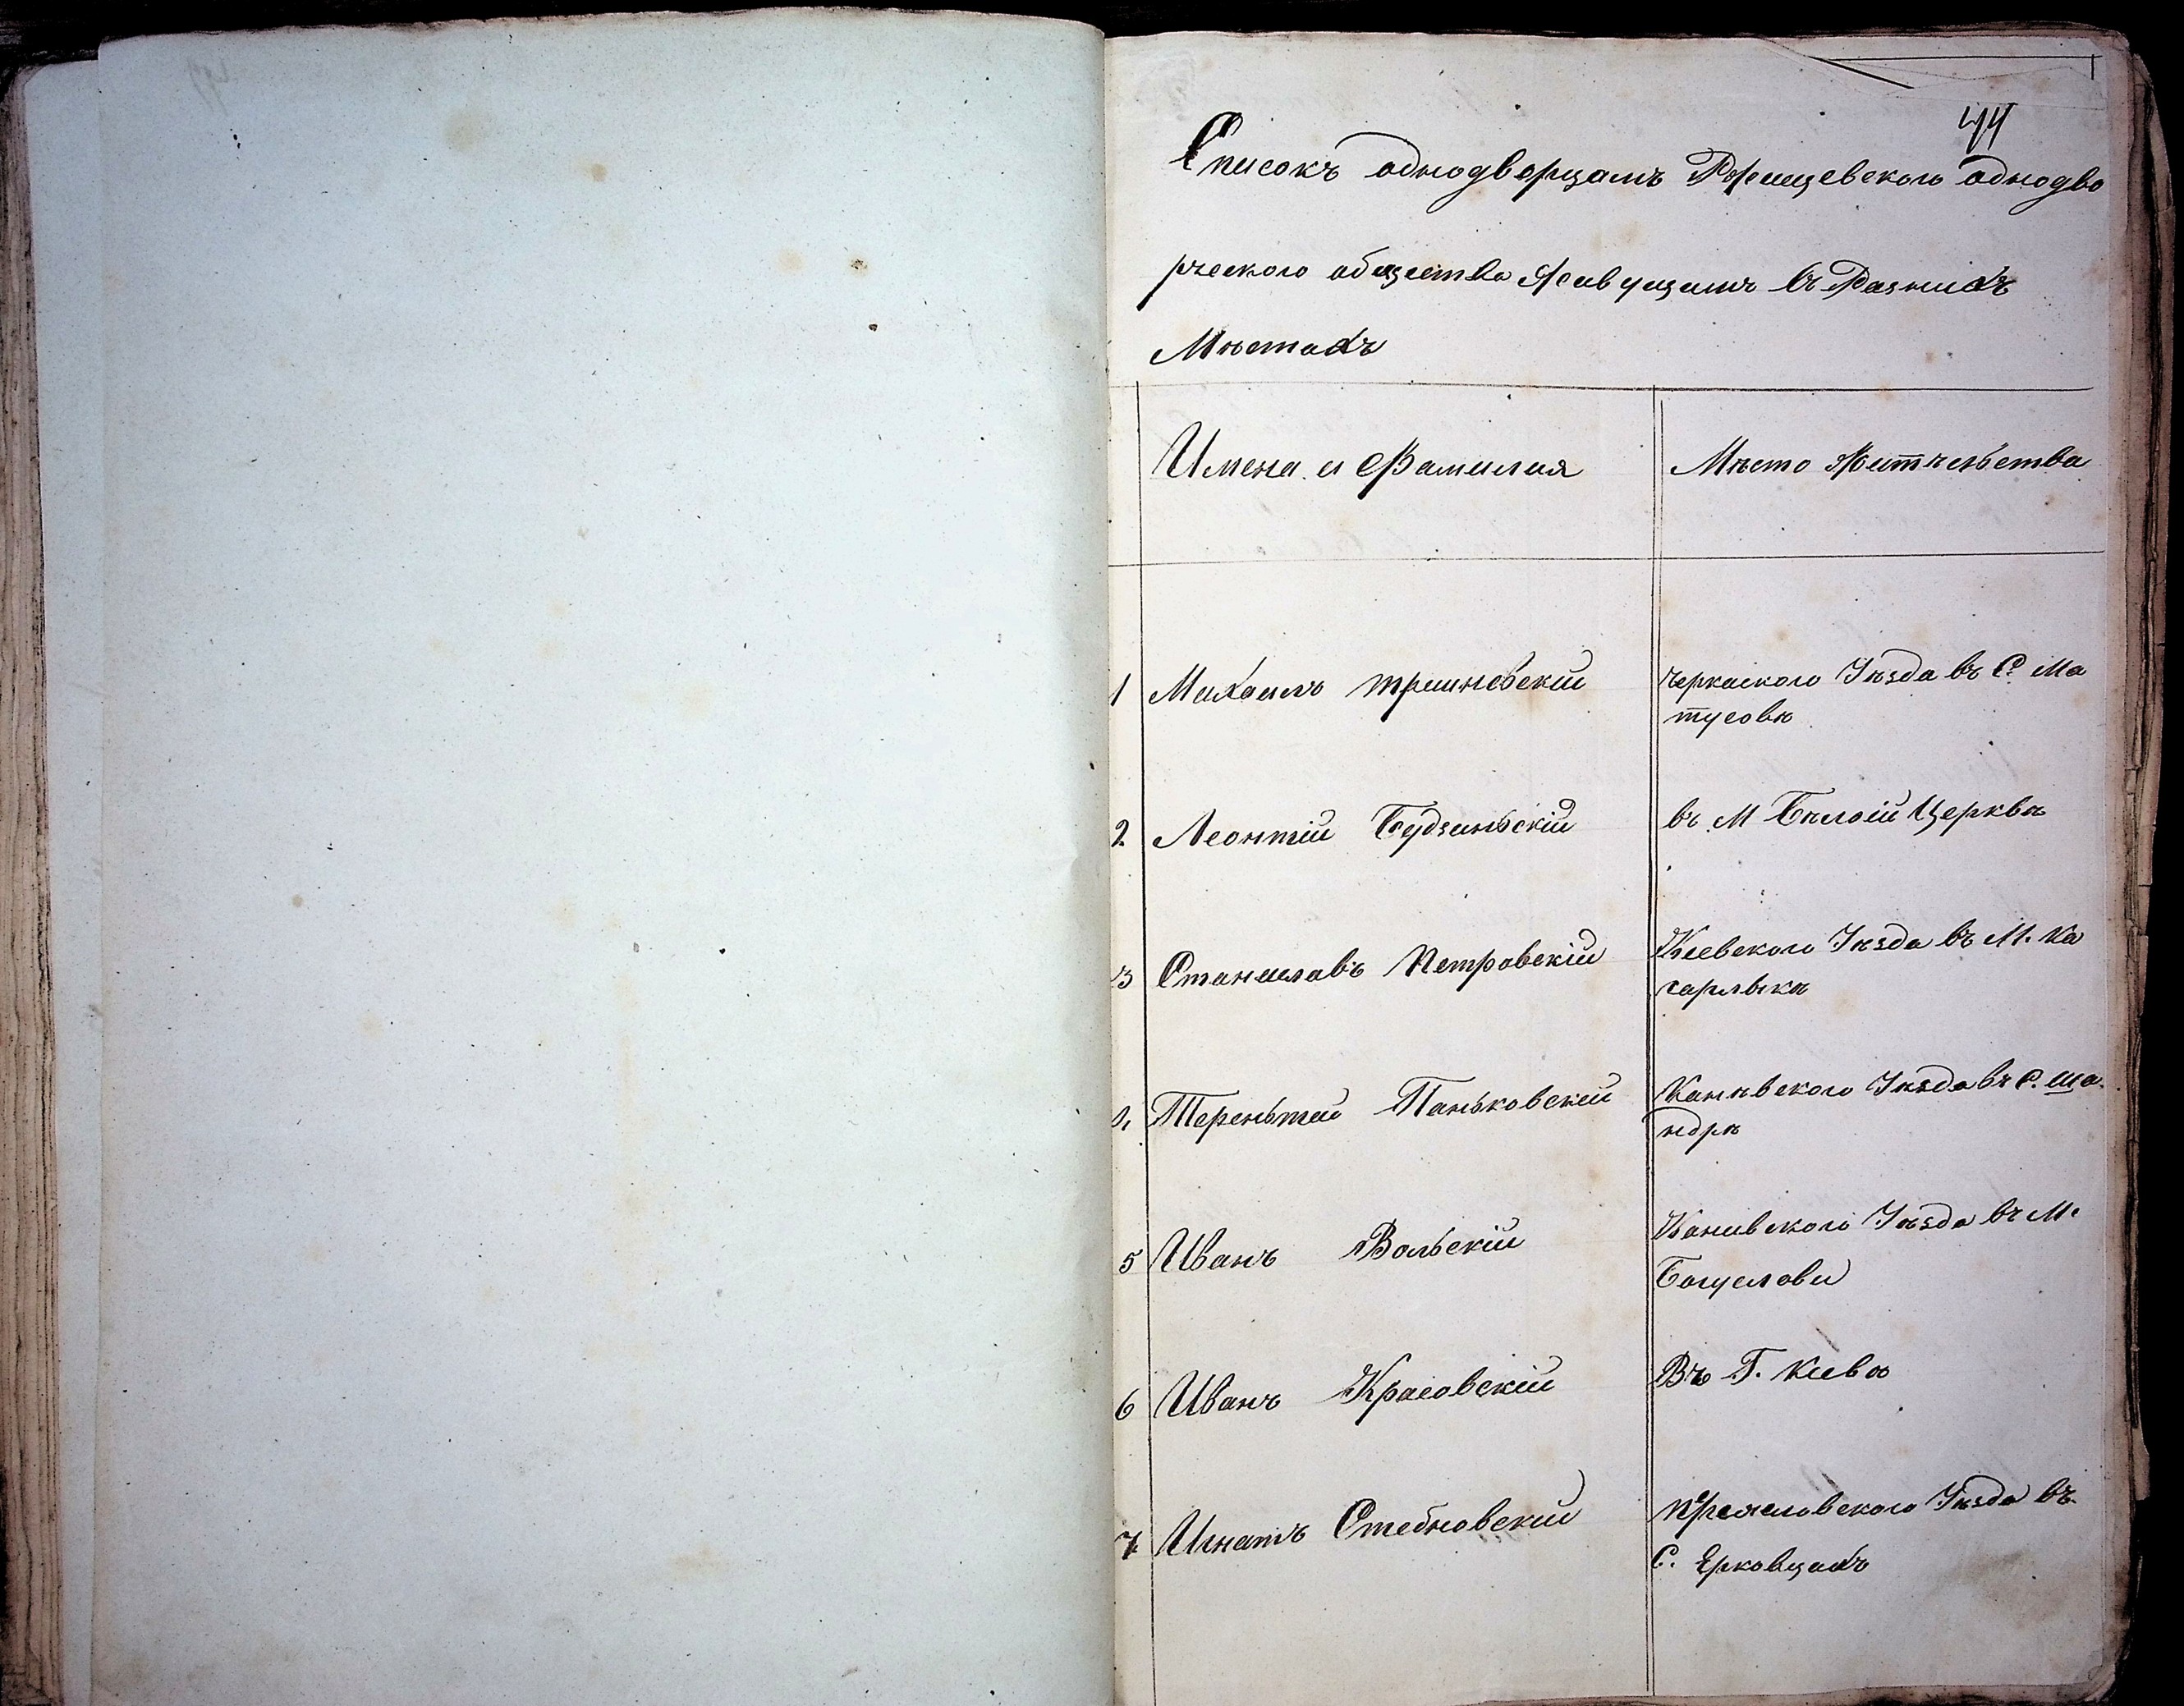 44
Списокъ однодворцамъ Ржищевского однодво
рческого общества Живущимъ въ Разнихъ
Мѣстахъ
Имена и Фамилия
Мѣсто Жителѣства
1 Михаилъ Тришневский
Черкаского Уѣзда въ С. Ма
тусовѣ
2 Леонтій Будзинский
въ М Бѣлоій Церквѣ
3 Станиславъ Петровскій
Киевского Уѣзда въ М. Ка
гарлыкѣ
4 Терентий Паньковский
Канѣвского Уѣзда въ С. Ша
ндрѣ
5 Иванъ Вольскій
Канивского Уѣзда въ М.
Богуслови
6 Иванъ Красовскій
Въ Г. Киевѣ
7 Игнатъ Стебновский
Переяеловского Уѣзда въ
С. Ерковцахъ